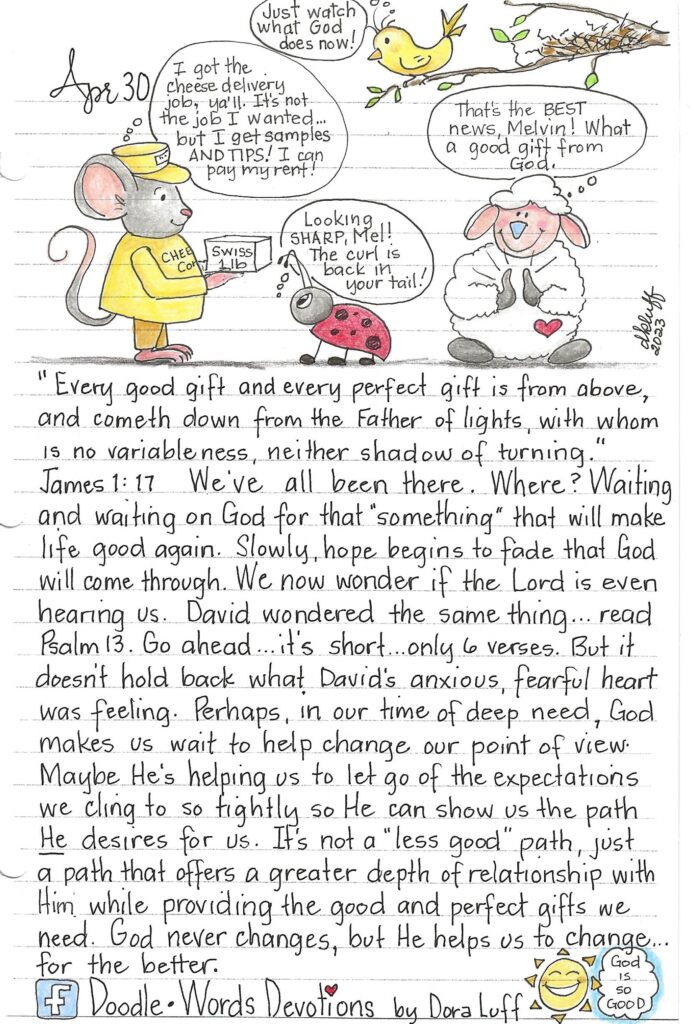 Just watch
what God
does now!
Apr 30
I got the
cheese delivery
job, ya'll. It's not
the job I wanted...
but I get samples
AND TIPS! I can
pay my rent!
That's the BEST
news, Melvin! What
a good gift from
God.
Looking
SHARP, Mel!
The curl is
back in
your tail!
CHEE
Co
SWISS
1 lb
dkluff
2023
"Every good gift and every perfect gift is from above,
and cometh down from the Father of lights, with whom
is no variableness, neither shadow of turning."
James 1:17 We've all been there. Where? Waiting
and waiting on God for that "something" that will make
life good again. Slowly, hope begins to fade that God
will come through. We now wonder if the Lord is even
hearing us. David wondered the same thing... read
Psalm 13. Go ahead...it's short...only 6 verses. But it
doesn't hold back what David's anxious, fearful heart
was feeling. Perhaps, in our time of deep need, God
makes us wait to help change our point of view.
Maybe He's helping us to let go of the expectations
we cling to so tightly so He can show us the path
He desires for us. It's not a "less good" path, just
a path that offers a greater depth of relationship with
Him while providing the good and perfect gifts we
need. God never changes, but He helps us to change...
for the better.
f Doodle•Words Devotions by Dora Luff
God
is
so
GOOD